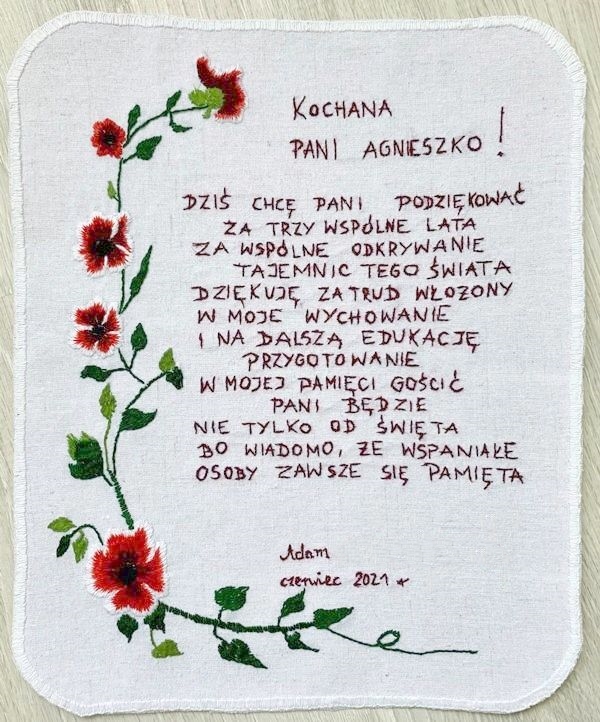 KOCHANA
PANI AGNIESZKO!
DZIŚ CHCĘ PANI PODZIĘKOWAĆ
ZA TRZY WSPÓLNE LATA
ZA WSPÓLNE ODKRYWANIE
TAJEMNIC TEGO ŚWIATA
DZIĘKUJĘ ZA TRUD WŁOŻONY
W MOJE WYCHOWANIE
I NA DALSZĄ EDUKACJĘ
PRZYGOTOWANIE
W MOJEJ PAMIĘCI GOŚCIĆ
PANI BĘDZIE
NIE TYLKO OD ŚWIĘTA
BO WIADOMO, ŻE WSPANIAŁE
OSOBY ZAWSZE SIĘ PAMIĘTA
Adam
czerwiec 2021 r